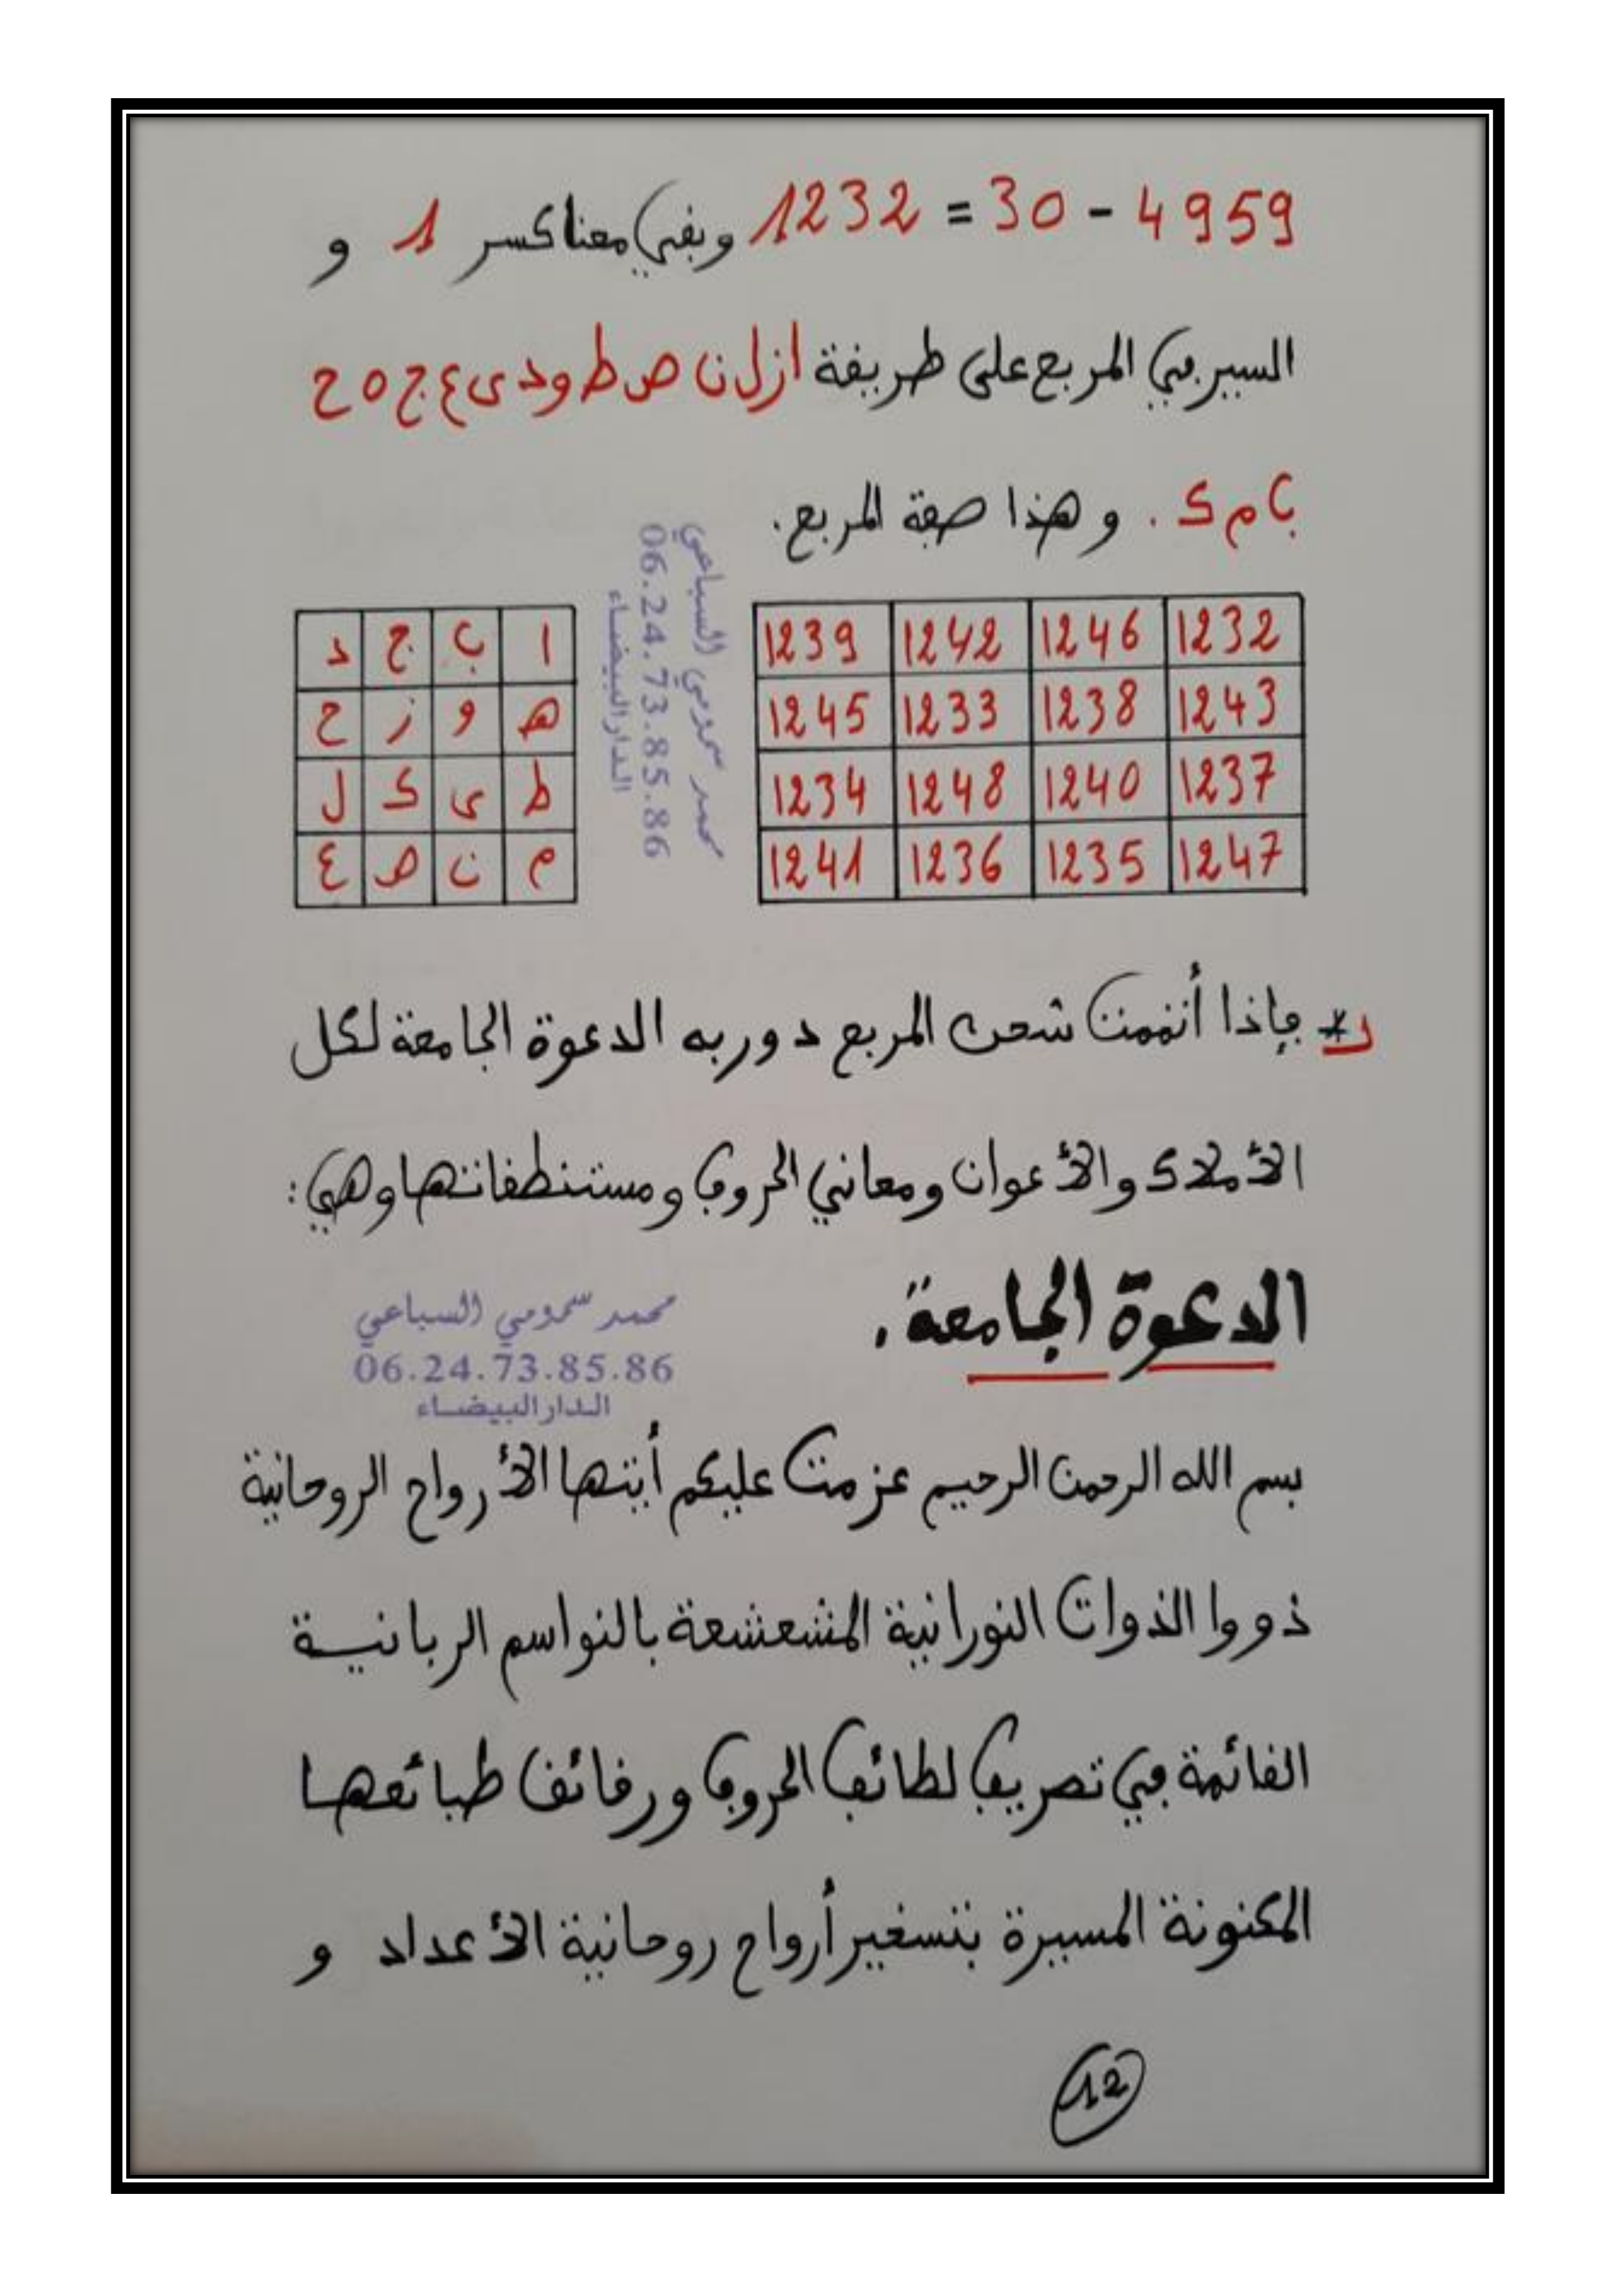 4959 - 30 = 1232 وبقي معنا كسر 1 و
السير في المربع على طريقة ا ز ل ن ص ط و د ى ع ج ه ح
ب م ك . وهذا صفة المربع.
1232 1246 1242 1239
1243 1238 1233 1245
1237 1240 1248 1234
1247 1235 1236 1241
ا ب ج د
ه و ز ح
ط ى ك ل
م ن ص ع
محمد سمومي السباعي
06.24.73.85.86
الدار البيضاء
فإذا أتممت شحن المربع دور به الدعوة الجامعة لكل
الأملاك والأعوان ومعاني الحروف ومستنطقاتها وهي:
الدعوة الجامعة.
محمد سمومي السباعي
06.24.73.85.86
الدار البيضاء
بسم الله الرحمن الرحيم عزمت عليكم أيتها الأرواح الروحانية
ذووا الذوات النورانية المشعشعة بالنواسم الربانية
القائمة في تصريف لطائف الحروف ورقائق طبائعها
المكنونة المسيرة بتسغير أرواح روحانية الأعداد و
12